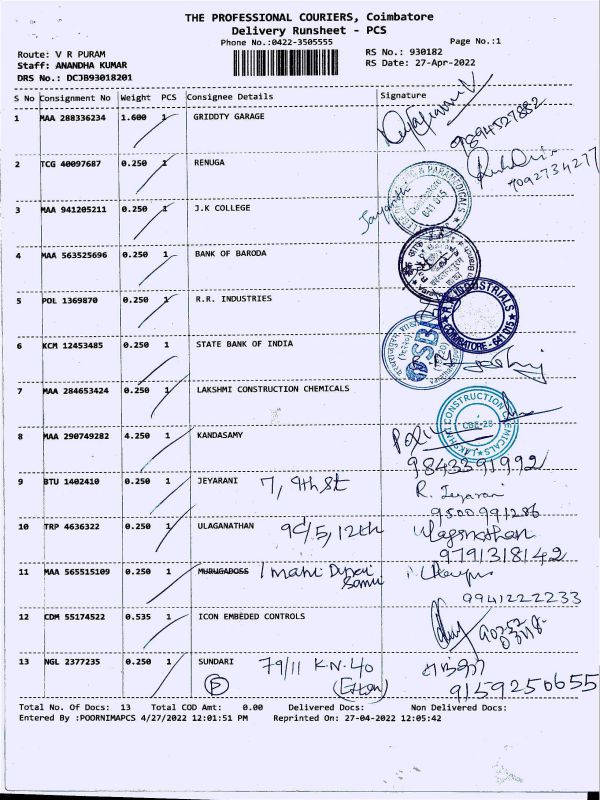 THE PROFESSIONAL COURIERS, Coimbatore
Delivery Runsheet - PCS
Phone No.:0422-3505555
Page No.:1
Route: V R PURAM
RS No.: 930182
Staff: ANANDHA KUMAR
RS Date: 27-Apr-2022
DRS No.: DCJB93018201
S No Consignment No Weight PCS Consignee Details Signature
1 MAA 288336234 1.600 1 GRIDDTY GARAGE
9894527882
2 TCG 40097687 0.250 1 RENUGA
7092734277
3 MAA 941205211 0.250 1 J.K COLLEGE
& PARAMEDICALS
Coimbatore
641 015
4 MAA 563525696 0.250 1 BANK OF BARODA
5 POL 1369870 0.250 1 R.R. INDUSTRIES
COIMBATORE - 641 015
6 KCM 12453485 0.250 1 STATE BANK OF INDIA
SBI
7 MAA 284653424 0.250 1 LAKSHMI CONSTRUCTION CHEMICALS
LAKSHMI CONSTRUCTION CHEMICALS
CBE-28
8 MAA 290749282 4.250 1 KANDASAMY
9843391992
9 BTU 1402410 0.250 1 JEYARANI 7, 9th st R. Jeyarani
9500991286
10 TRP 4636322 0.250 1 ULAGANATHAN 9C/5, 12th Ulaganathan
9791318142
11 MAA 565515109 0.250 1 MURUGABOSS
9941222233
12 CDM 55174522 0.535 1 ICON EMBEDED CONTROLS
13 NGL 2377235 0.250 1 SUNDARI 79/11 K.N. 40
P
9159250655
Total No. Of Docs: 13 Total COD Amt: 0.00 Delivered Docs: Non Delivered Docs:
Entered By :POORNIMAPCS 4/27/2022 12:01:51 PM Reprinted On: 27-04-2022 12:05:42